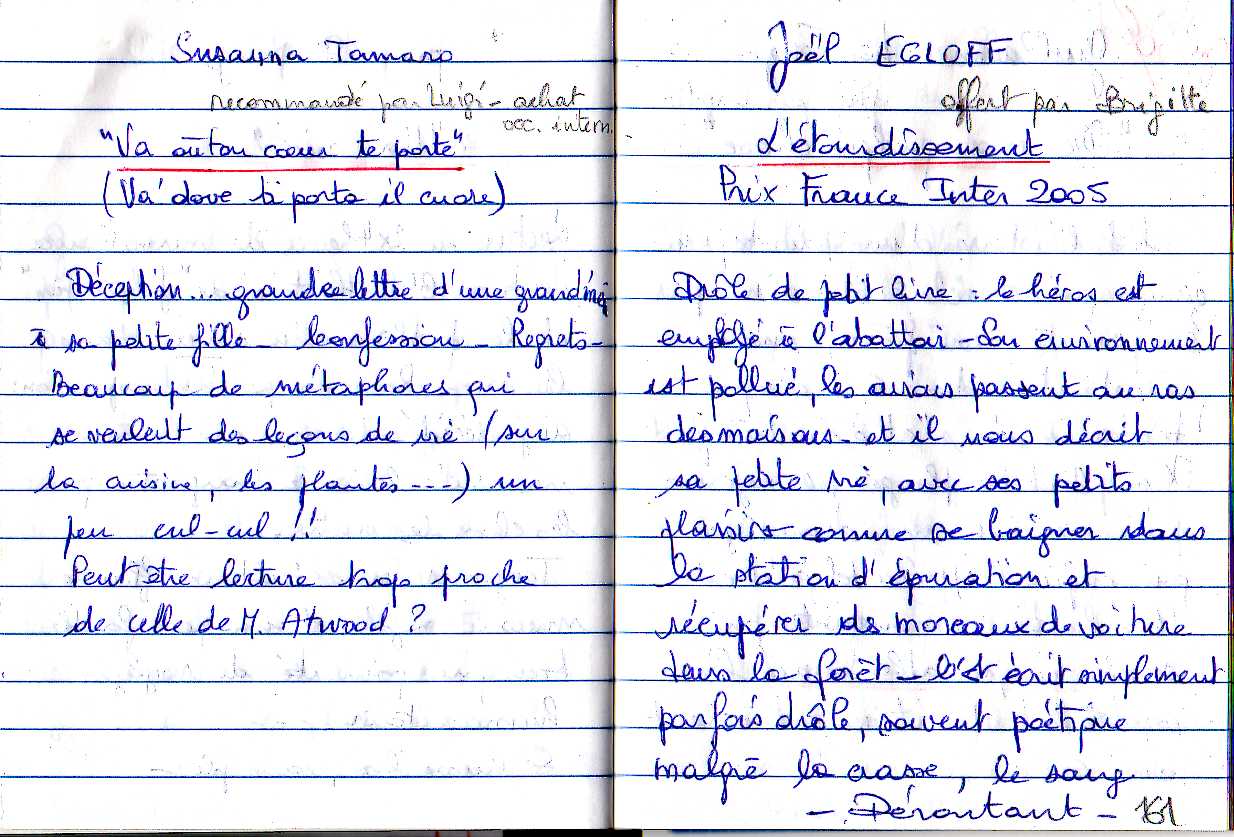 Susanna Tamaro
recommandé par Luigi - achat
occ. intern.
"Va où ton coeur te porte"
(Va' dove ti porta il cuore)
Déception... grande lettre d'une grandmè
à sa petite fille - Confession - Regrets -
Beaucoup de métaphores qui
se veulent des leçons de vie (sur
la cuisine, les plantes ---) un
peu cul-cul !!
Peut être lecture trop proche
de celle de M. Atwood ?
Joël EGLOFF
offert par Brigitte
L'étourdissement
Prix France Inter 2005
Drôle de petit livre : le héros est
employé à l'abattoir - Son environnement
est pollué, les avions passent au ras
des maisons - et il nous décrit
sa petite vie, avec ses petits
plaisirs comme se baigner dans
la station d'épuration et
récupérer des morceaux de voiture
dans la forêt - C'est écrit simplement
parfois drôle, souvent poétique
malgré la crasse, le sang
- Déroutant - 161